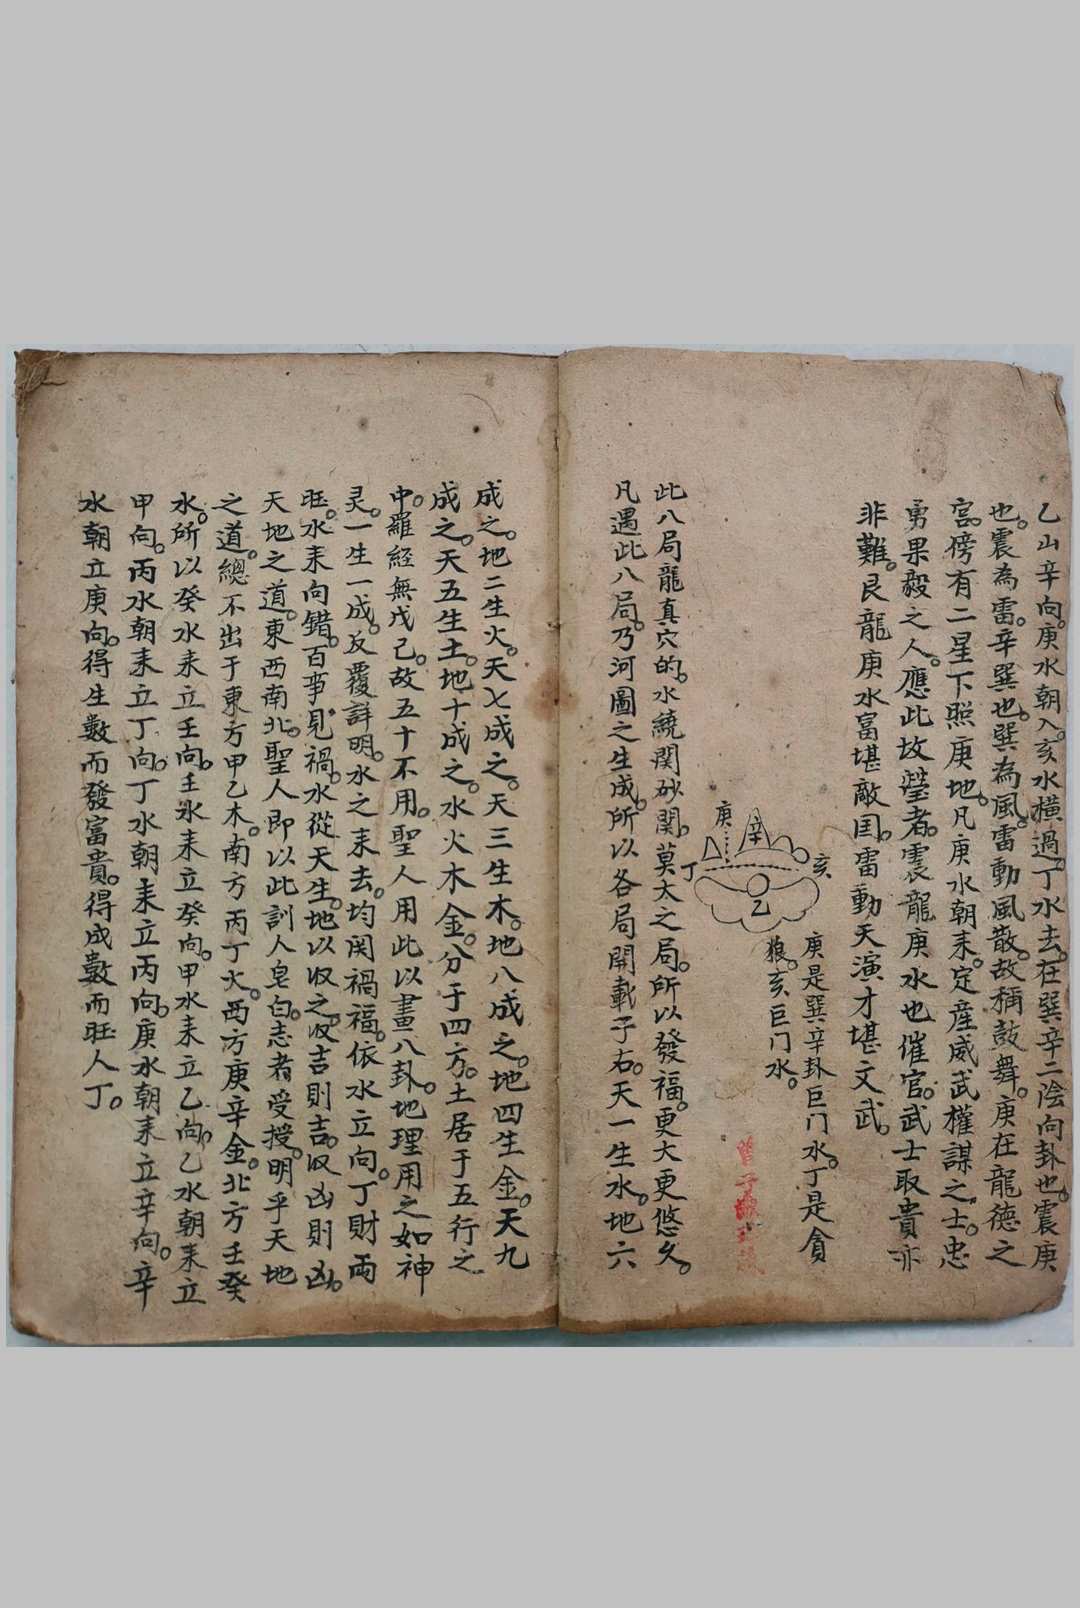 乙山辛向。庚水朝入。亥水橫過。丁水去。在巽辛二陰向卦也。震庚
也。震為雷。辛巽也。巽為風。雷動風散。故稱鼓舞。庚在龍德之
宮。傍有二星下照庚地。凡庚水朝耒。定産威武權謀之士。忠
勇果毅之人。應此坟塋者。震龍庚水也催官。武士取貴亦
非難。艮龍庚水富堪敵国。雷動天演才堪文武。
庚
辛
亥
丁
乙
庚是巽辛卦巨门水。丁是貪
狼。亥巨门水。
此八局龍真穴的。水繞関砂関。莫太之局。所以發福。更大更悠久。
凡遇此八局。乃河圖之生成。所以各局開載于右。天一生水。地六
成之。地二生火。天七成之。天三生木。地八成之。地四生金。天九
成之。天五生土。地十成之。水火木金。分于四方。土居于五行之
中。羅経無戊己。故五十不用。聖人用此以畫八卦。地理用之如神
灵。一生一成。反覆詳明。水之耒去。均関禍福。依水立向。丁財両
旺。水耒向錯。百事見禍。水從天生。地以収之。収吉則吉。収凶則凶。
天地之道。東西南北。聖人即以此訓人皂白。志者受授。明乎天地
之道。總不出于東方甲乙木。南方丙丁火。西方庚辛金。北方壬癸
水。所以癸水耒立壬向。壬水耒立癸向。甲水耒立乙向。乙水朝耒立
甲向。丙水朝耒立丁向。丁水朝耒立丙向。庚水朝耒立辛向。辛
水朝立庚向。得生數而發富貴。得成數而旺人丁。